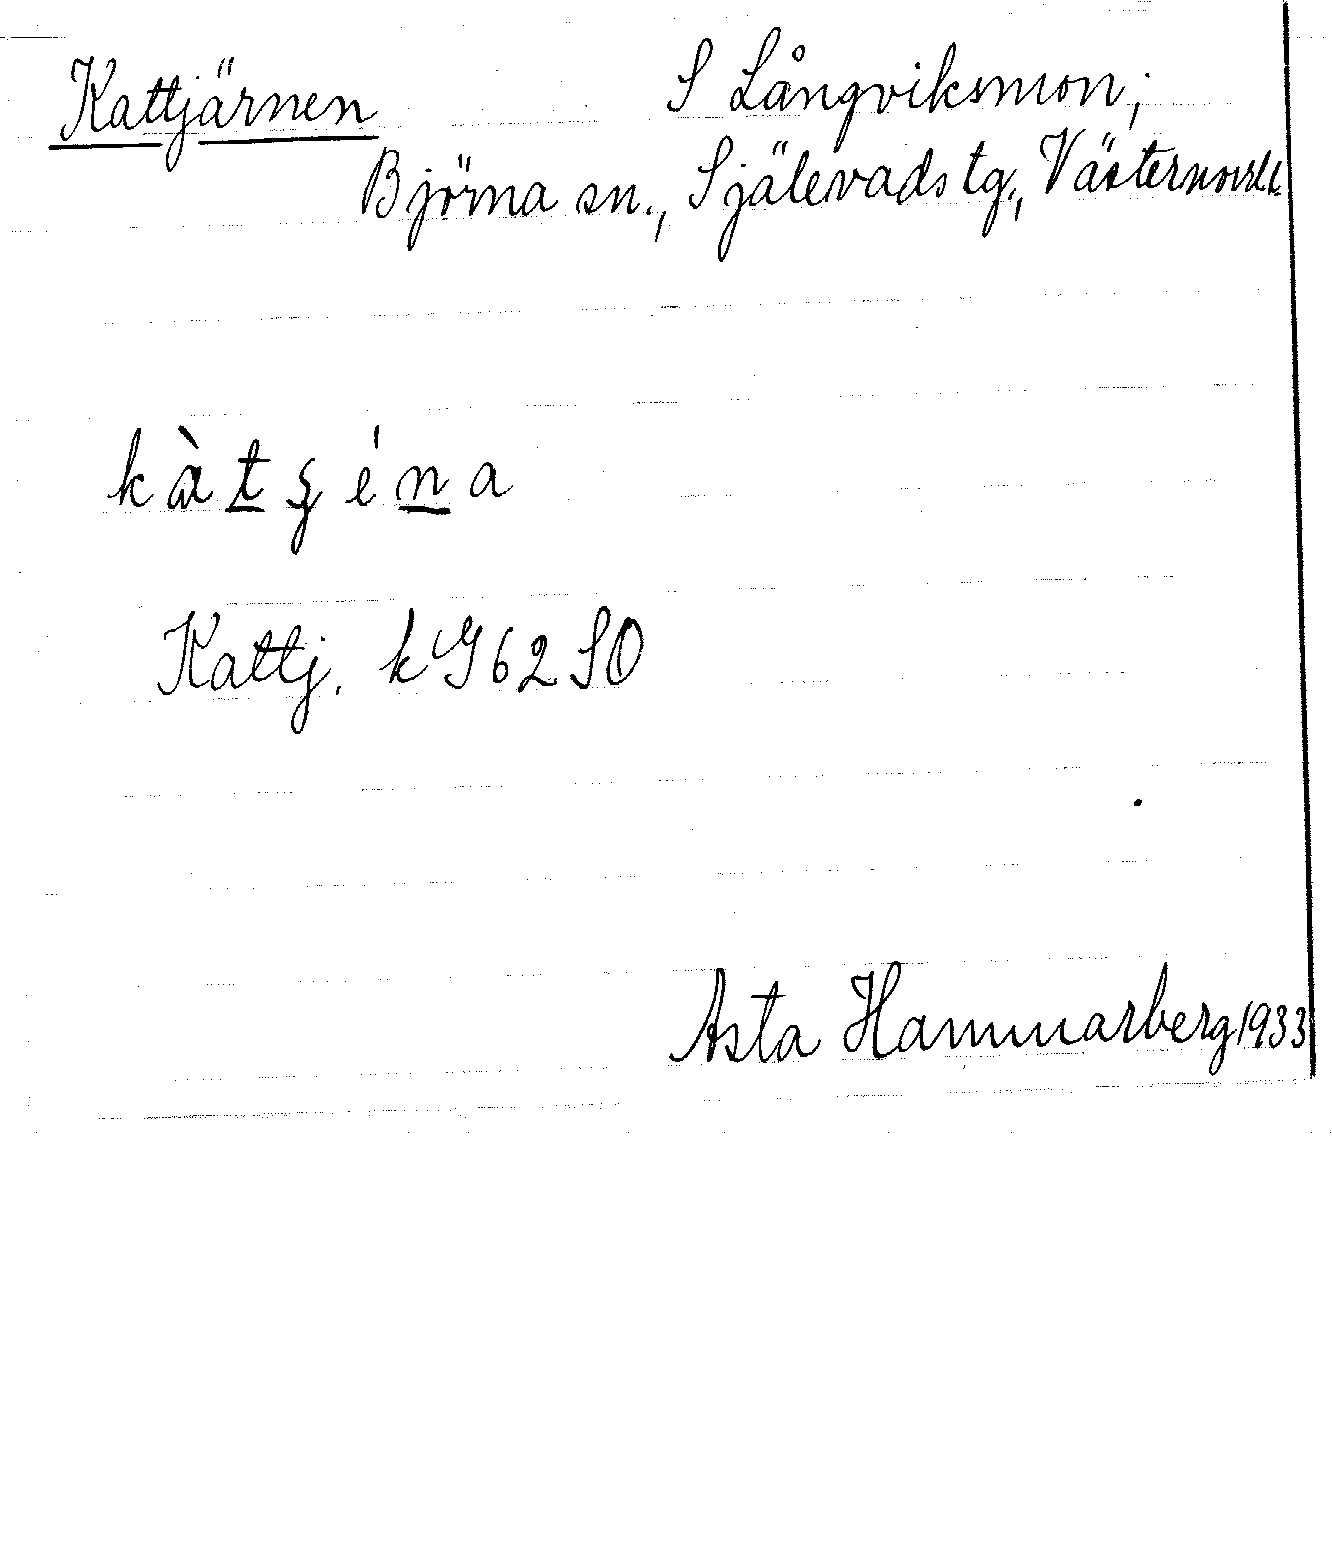 Kattjärnen S Långviksmon,
Björna sn., Själevads tg., Västernorrl.
kàtşéna
Kattj. k G62 SO
Asta Hammarberg 1933